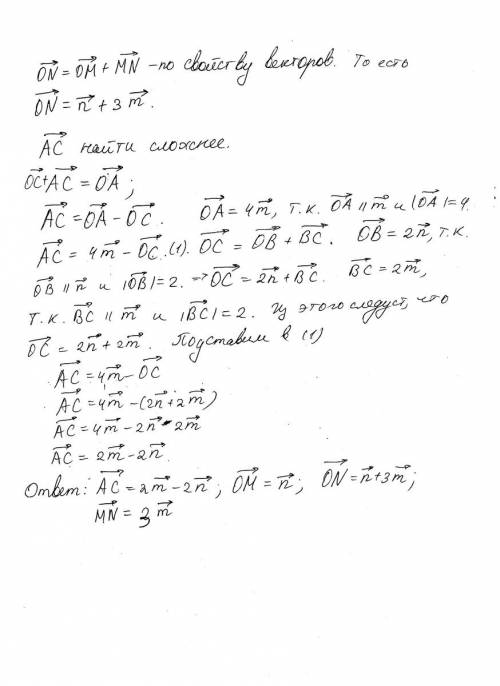 ON⃗ = OM⃗ + MN⃗ – по свойству векторов. То есть
ON⃗ = n⃗ + 3m⃗.
AC⃗ найти сложнее.
OC⃗ + AC⃗ = OA⃗;
AC⃗ = OA⃗ - OC⃗. OA⃗ = 4m⃗, т.к. OA⃗ || m⃗ и |OA⃗| = 4.
AC⃗ = 4m⃗ - OC⃗. (1). OC⃗ = OB⃗ + BC⃗. OB⃗ = 2n⃗, т.к.
OB⃗ || n⃗ и |OB⃗| = 2. → OC⃗ = 2n⃗ + BC⃗. BC⃗ = 2m⃗,
т.к. BC⃗ || m⃗ и |BC⃗| = 2. Из этого следуст, что
OC⃗ = 2n⃗ + 2m⃗. Подставим в (1)
AC⃗ = 4m⃗ - OC⃗
AC⃗ = 4m⃗ - (2n⃗ + 2m⃗)
AC⃗ = 4m⃗ - 2n⃗ - 2m⃗
AC⃗ = 2m⃗ - 2n⃗.
Ответ: AC⃗ = 2m⃗ - 2n⃗; OM⃗ = n⃗; ON⃗ = n⃗ + 3m⃗;
MN⃗ = 3m⃗